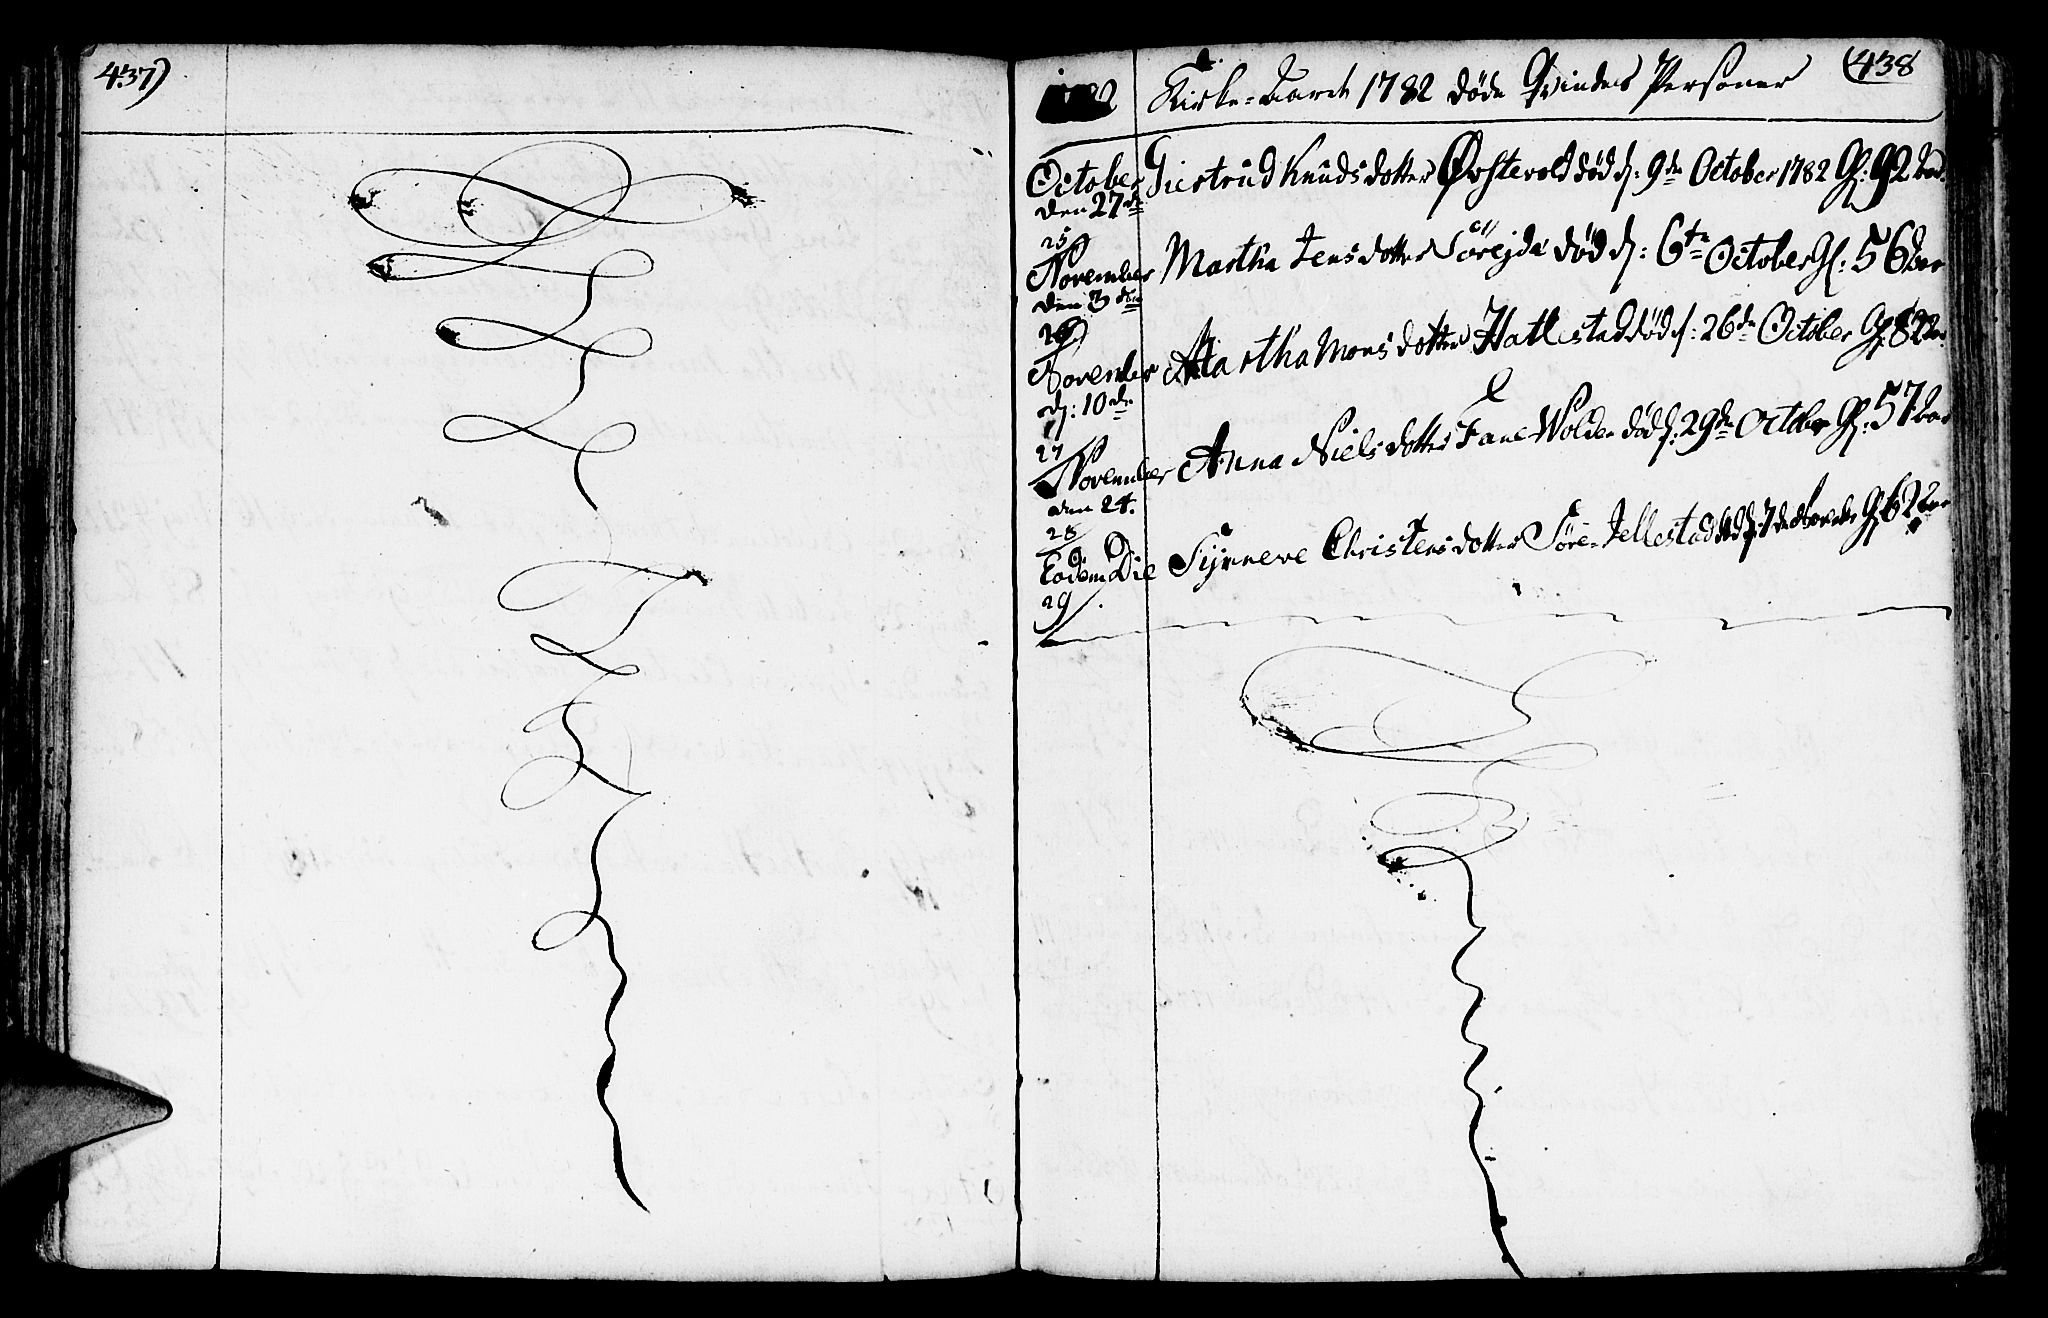 437)
1782 Kirke-Aaret 1782 døde Qvindes Personer (438
October Giertrud Knudsdotter Øvstevold død d: 9de October 1782 Gl: 92 Aar.
den 27de
25
November Martha Jensdotter Sörejde død d: 6te October Gl: 56 Aar
den 3die
26
November Martha Monsdotter Hatlestad død d: 26de October Gl: 82 Aar.
d: 10de
27
November Anna Nielsdotter Fane Wolden død d: 29de October Gl: 57 Aar
den 24.
28
Eodem Die Synneve Christensdotter Søre Jellestad død d: 7de Novembr Gl: 62 Aar
29